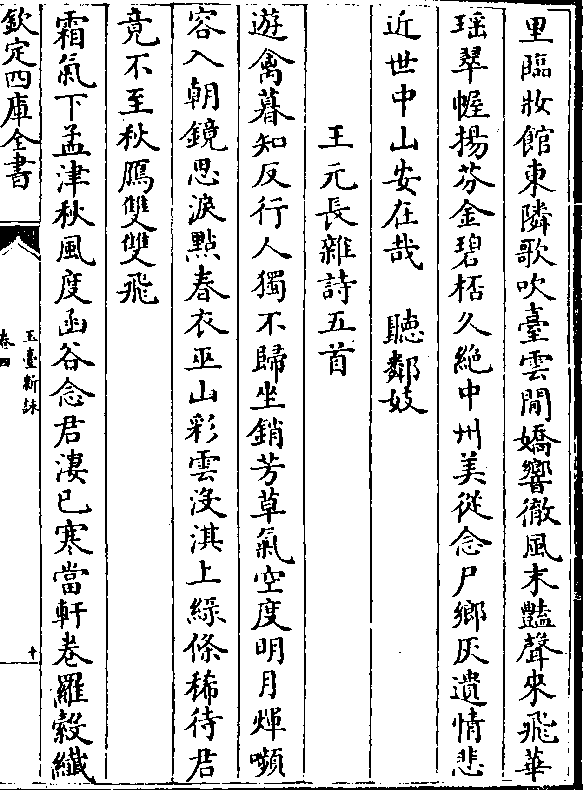 里臨妝館東隣歌吹臺雲閒嬌響徹風末豔聲來飛華
瑶翠幄揚芬金碧桮久絶中州美從念尸鄉灰遺情悲
近世中山安在哉　聽鄰妓
王元長雜詩五首
遊禽暮知反行人獨不歸坐銷芳草氣空度明月煇嚬
容入朝鏡思淚點春衣巫山彩雲沒淇上緑條稀待君
竟不至秋鴈雙雙飛
霜氣下孟津秋風度函谷念君淒已寒當軒卷羅縠纖
欽定四庫全書
玉臺新詠
卷四
十